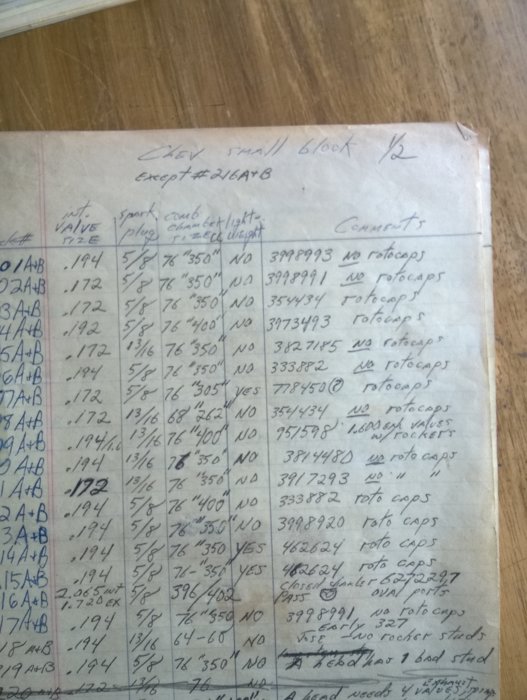 CHEV small block 1/2
Except #216A+B
int. VALVE SIZE spark plug comb CHAMBER SIZE light-weight Comments
01A+B .194 5/8 76 "350" NO 3998993 NO rotocaps
02A+B .172 5/8 76 "350" NO 3998991 NO rotocaps
3A+B .172 5/8 76 "350" NO 354434 rotocaps
4A+B .192 5/8 76 "400" NO 3973493 rotocaps
5A+B .172 13/16 76 "350" NO 3827185 NO rotocaps
6A+B .194 5/8 76 "350" NO 333882 NO rotocaps
7A+B .172 5/8 76 "305" YES 778450 rotocaps
8A+B .172 13/16 68 "262" NO 354434 NO rotocaps
9A+B .194/1.6 13/16 76 "400" NO 951598 1.600 ex VALVES w/rockers
A+B .194 13/16 76 "350" NO 3814480 NO roto caps
1A+B .172 13/16 76 "350" NO 3917293 NO " "
2A+B .194 5/8 76 "400" NO 333882 roto caps
3A+B .194 5/8 76 "350" NO 3998920 roto caps
14A+B .194 5/8 76 "350 YES 462624 roto caps
15A+B .194 5/8 76-"350" YES 462624 roto caps
16A+B 2.065 int 1.720 EX 5/8 396/402 closed 6272297 PASS oval ports
17A+B .194 5/8 76 "350 NO 3998991 NO rotocaps
18A+B .194 13/16 64-60 NO EARLY 327 NO rocker studs
219A+B .194 5/8 76 "350" NO A head has 1 bad stud
.172 13/16 76 NO A head needs 4 EXHAUST VALVES